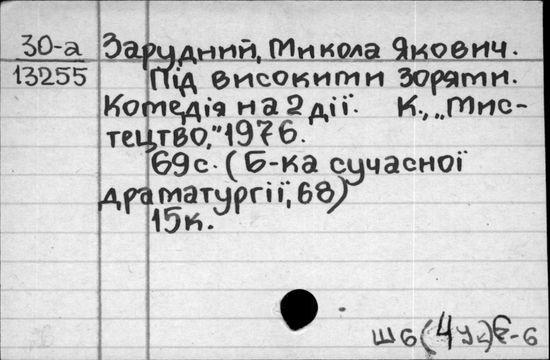 30-а
13255
Зарудний, Микола Якович.
Під високими зорями.
Комедія на 2 дії. К., „Мис-
тецтво,” 1976.
69 с. (Б-ка сучасної
драматургії, 68)
15к.
Ш6(4Ук)Є-6